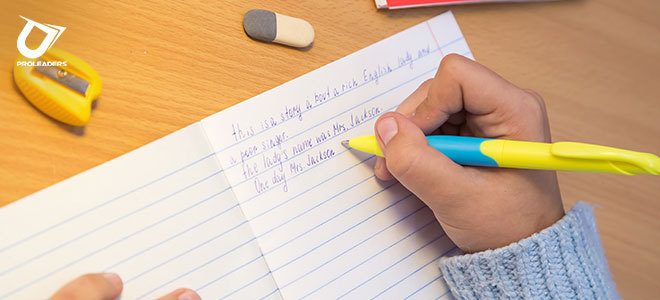 PROLEADERS
this is a story a bout a rich English lady and
a poor singer.
the lady's name was Mrs. Jackson.
One day Mrs. Jackson